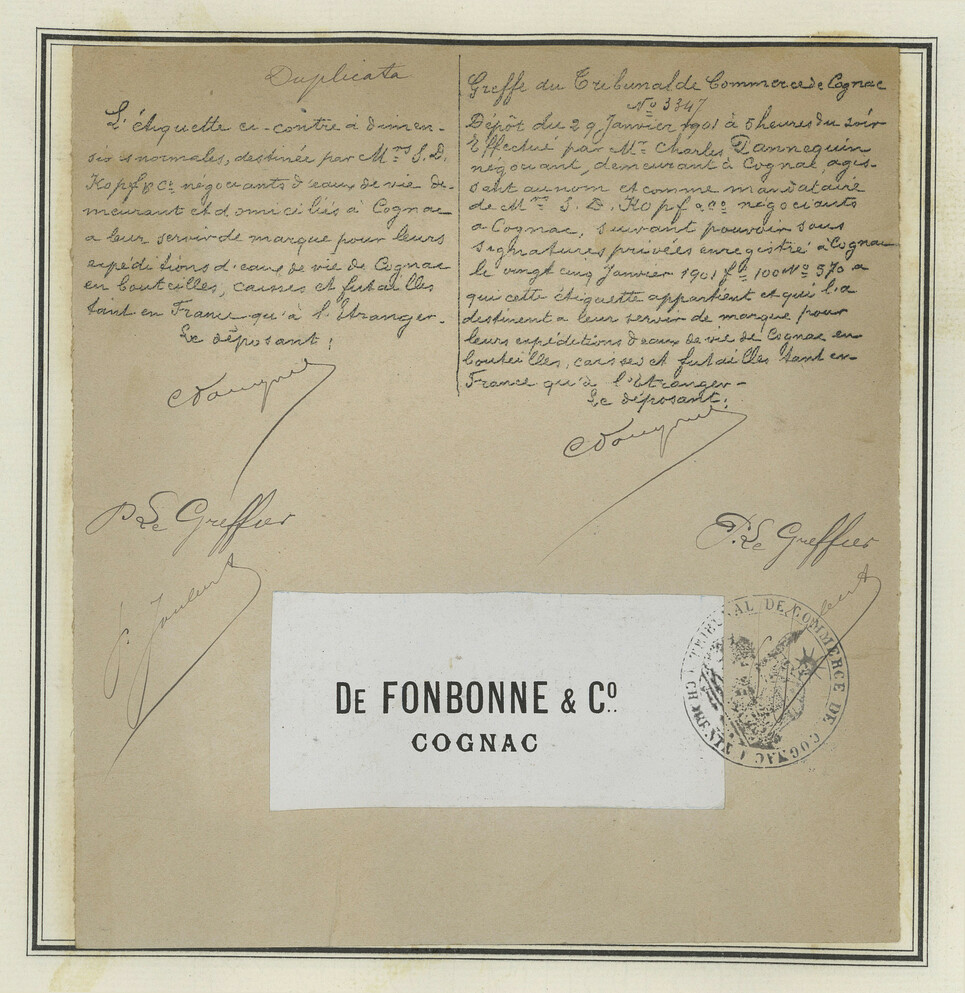 Duplicata
L'étiquette ci-contre à dimen-
sions normales, destinée par Mrs S. D.
Kopf & Co négociants d'eaux de vie de-
meurant et domiciliés à Cognac
a leur servir de marque pour leurs
expéditions d'eaux de vie de Cognac
en bouteilles, caisses et futailles
tant en France qu'à l'étranger.
Le déposant:
P. Le Greffier
Greffe du Tribunal de Commerce de Cognac
No 3347
Dépôt du 29 Janvier 1901 à 5 heures du soir
Effectué par Mr Charles
négociant, demeurant à Cognac, agis-
sant au nom et comme mandataire
de Mrs S. D. Kopf & Co négociants
a Cognac, suivant pouvoir sous
signatures privées enregistré à Cognac
le vingt cinq Janvier 1901 fo 100 No 570 a
qui cette étiquette appartient et qui l'a
destinent a leur servir de marque pour
leurs expéditions d'eaux de vie de Cognac en
bouteilles, caisses et futailles tant en
France qu'à l'étranger-
Le déposant:
P. Le Greffier
DE FONBONNE & Co.
COGNAC
TRIBUNAL DE COMMERCE DE COGNAC (CHARENTE)